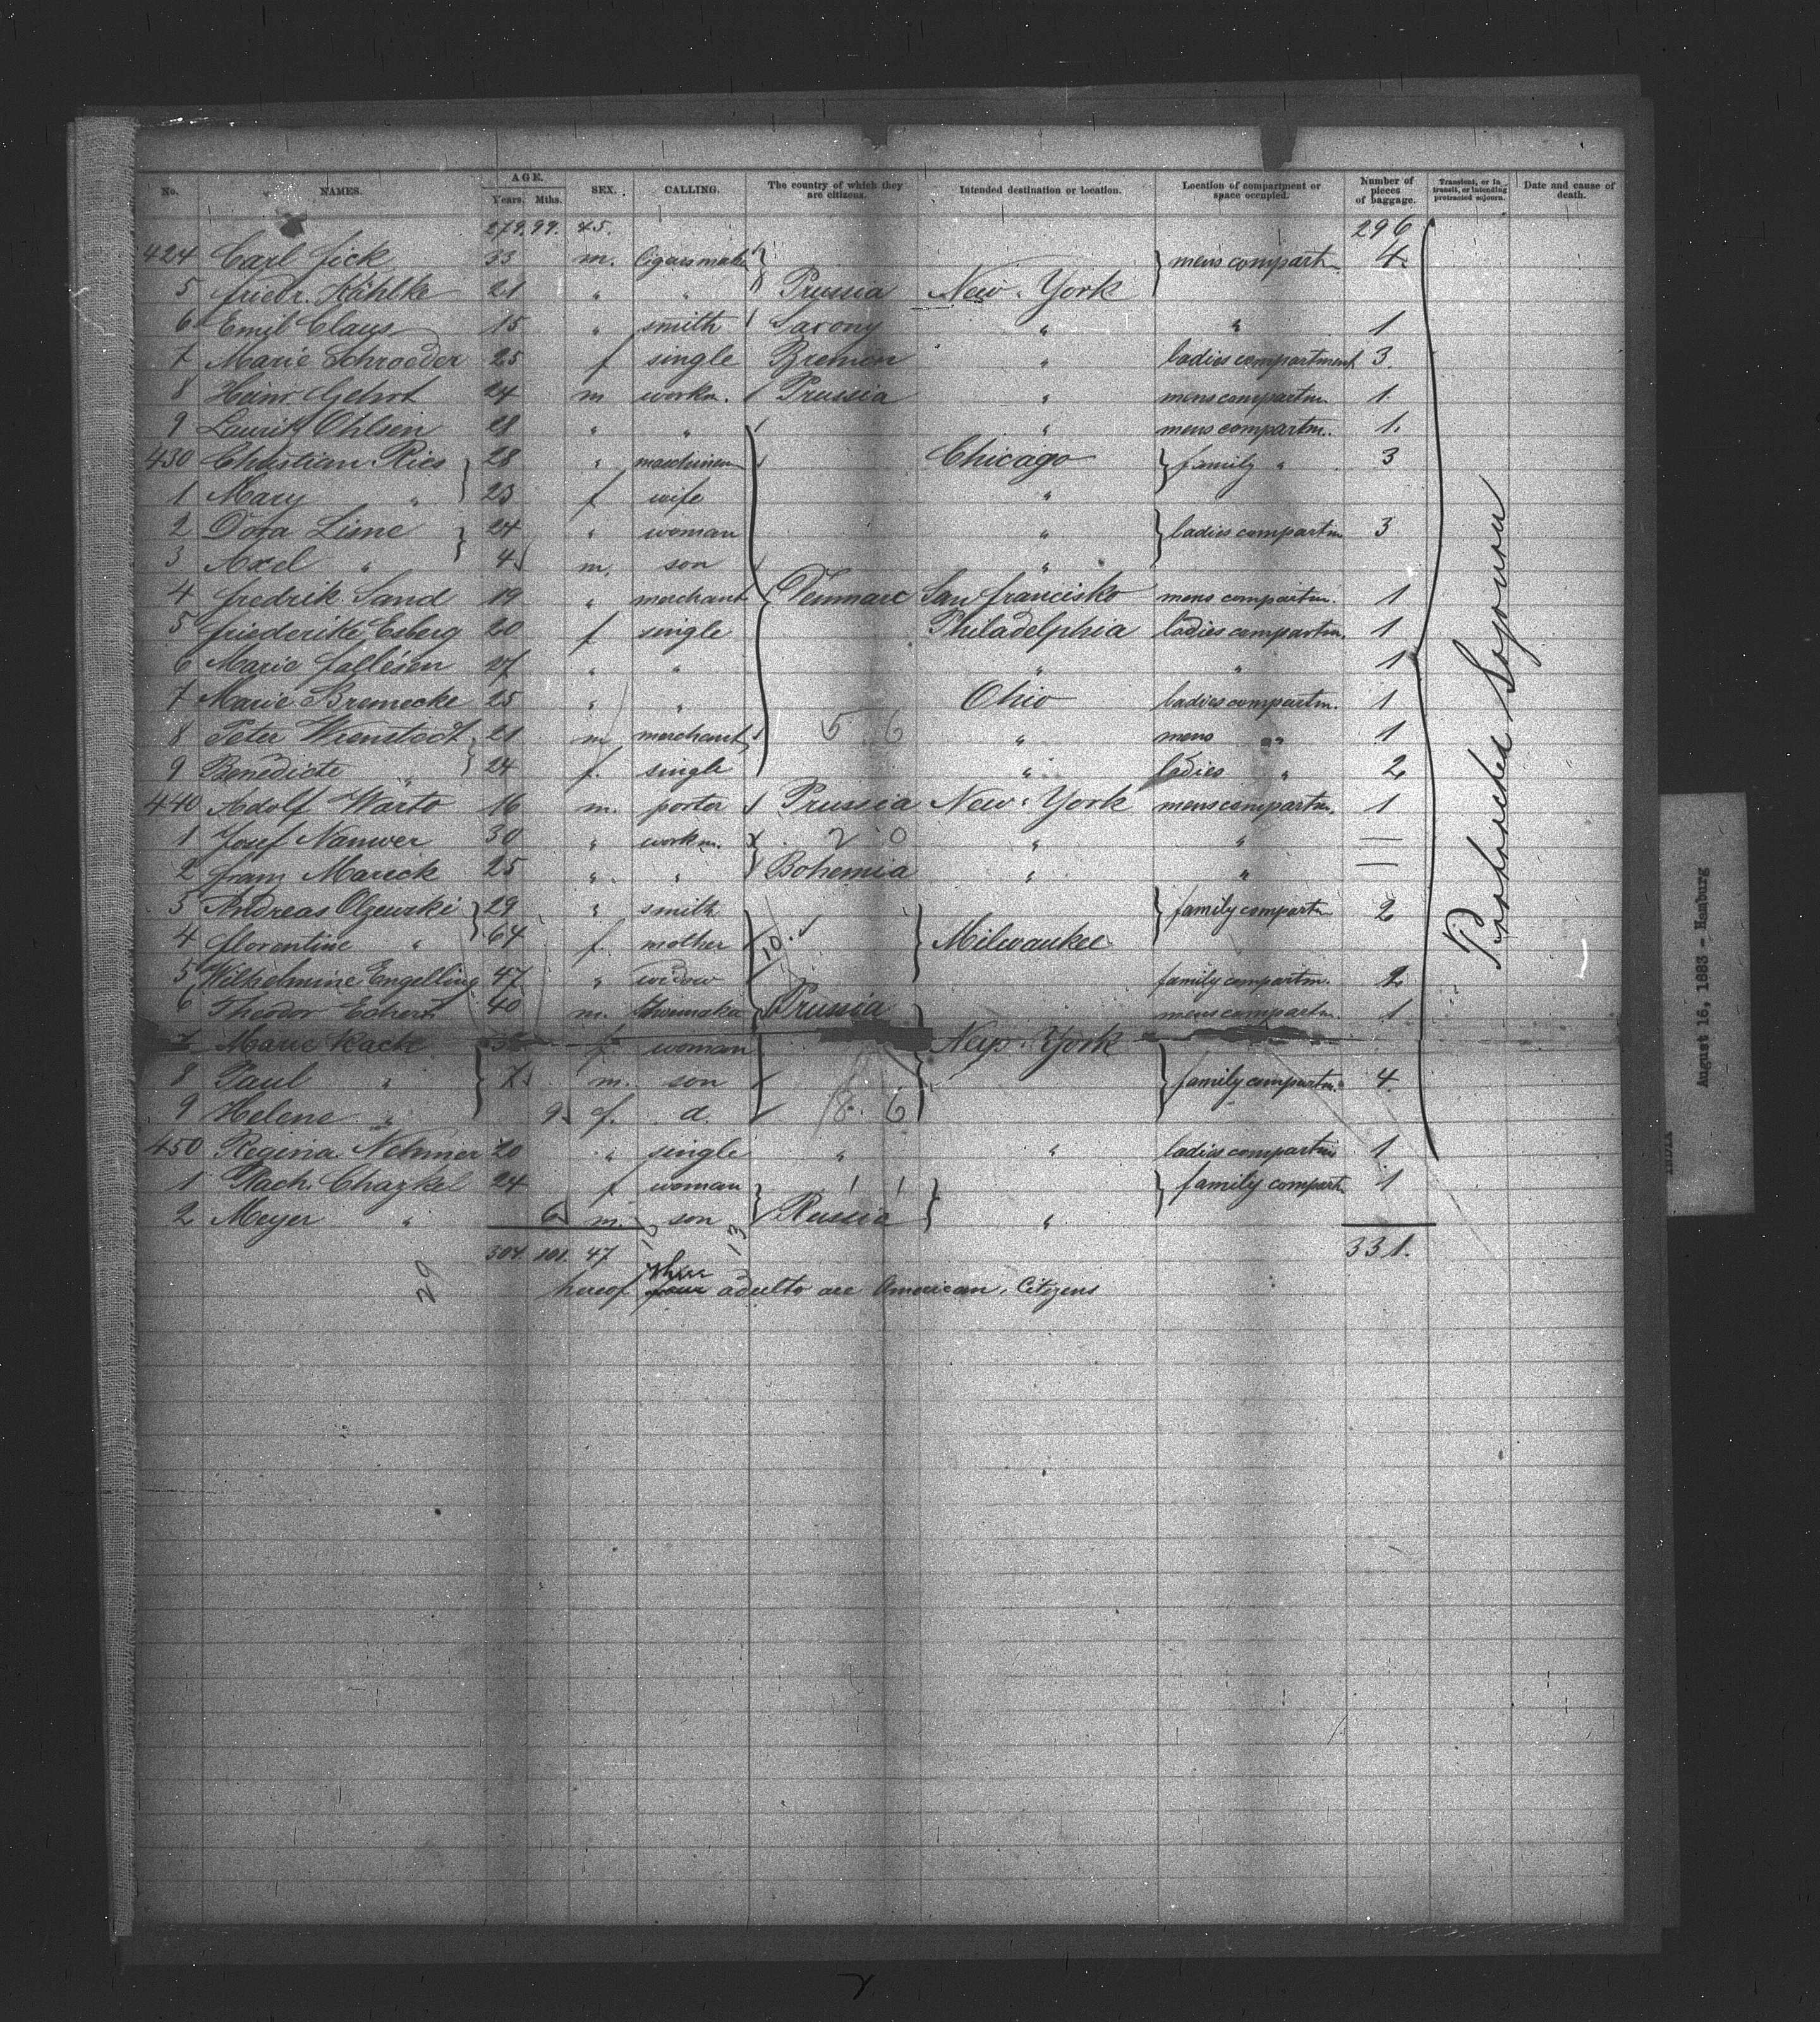 No. NAMES. AGE. Years. Mths. SEX. CALLING. The country of which they are citizens. Intended destination or location. Location of compartment or space occupied. Number of pieces of baggage. Transient, or in transit, or intending protracted sojourn. Date and cause of death.
279. 99. 45. 296
424 Carl Fick 33 m. Cigarsmaker } } mens compartm. 4.
5 Friedr. Kählke 21 " " Prussia New-York
6 Emil Claus 15 " smith Saxony " " 1
7 Marie Schroeder 25 f single Bremen " ladies compartment 3.
8 Heinr. Gehrt 24 m workm. Prussia " mens compartm 1.
9 Laurits Ohlsen 28 " " " mens compartm. 1.
430 Christian Ries } 28 " maschinen Chicago } family " 3
1 Mary " 23 f wife "
2 Dora Lime } 24 " woman " } ladies compartm 3
3 Axel " 4 m. son "
4 Fredrik Sand 19 " merchant Denmarc San Francisko mens compartm. 1
5 Friederike Esberg 20 f single Philadelphia ladies compartm. 1
6 Marie 27 " " " " 1
7 Marie Bremecke 25 " " Ohio ladies compartm. 1
8 Peter Wienstedt } 21 m merchant 5 6 " mens " 1
9 Benedicte " 24 f. single " ladies " 2
440 Adolf Warto 16 m. porter Prussia New-York mens compartm. 1
1 Josef Nanwer 30 " workm. 2 0 " " —
2 Franz Mareck 25 " " Bohemia " " —
3 Andreas Olzewski } 29 " smith } family compartm 2
4 Florentine " 64 f. mother 10. Milwaukee
5 Wilhelmine Engelling 47 " widow family compartm. 2
6 Theodor Eckert 40 m. Shoemaker Prussia mens compartm. 1
7 Marie Rack f woman New-York
8 Paul " m. son } family compartm. 4.
9 Helene " 9 f. d. 8. 6
450 Regina Nehmer 20 " single " " ladies compartm 1
1 Rach. Chazkel 24 f woman 1 1 } family compart. 1
2 Meyer " 6 m. son Russia } "
Protracted Sojourn
304. 101. 47 10 13 331.
29
three
hereof four adults are American Citizens
August 16, 1883 - Hamburg